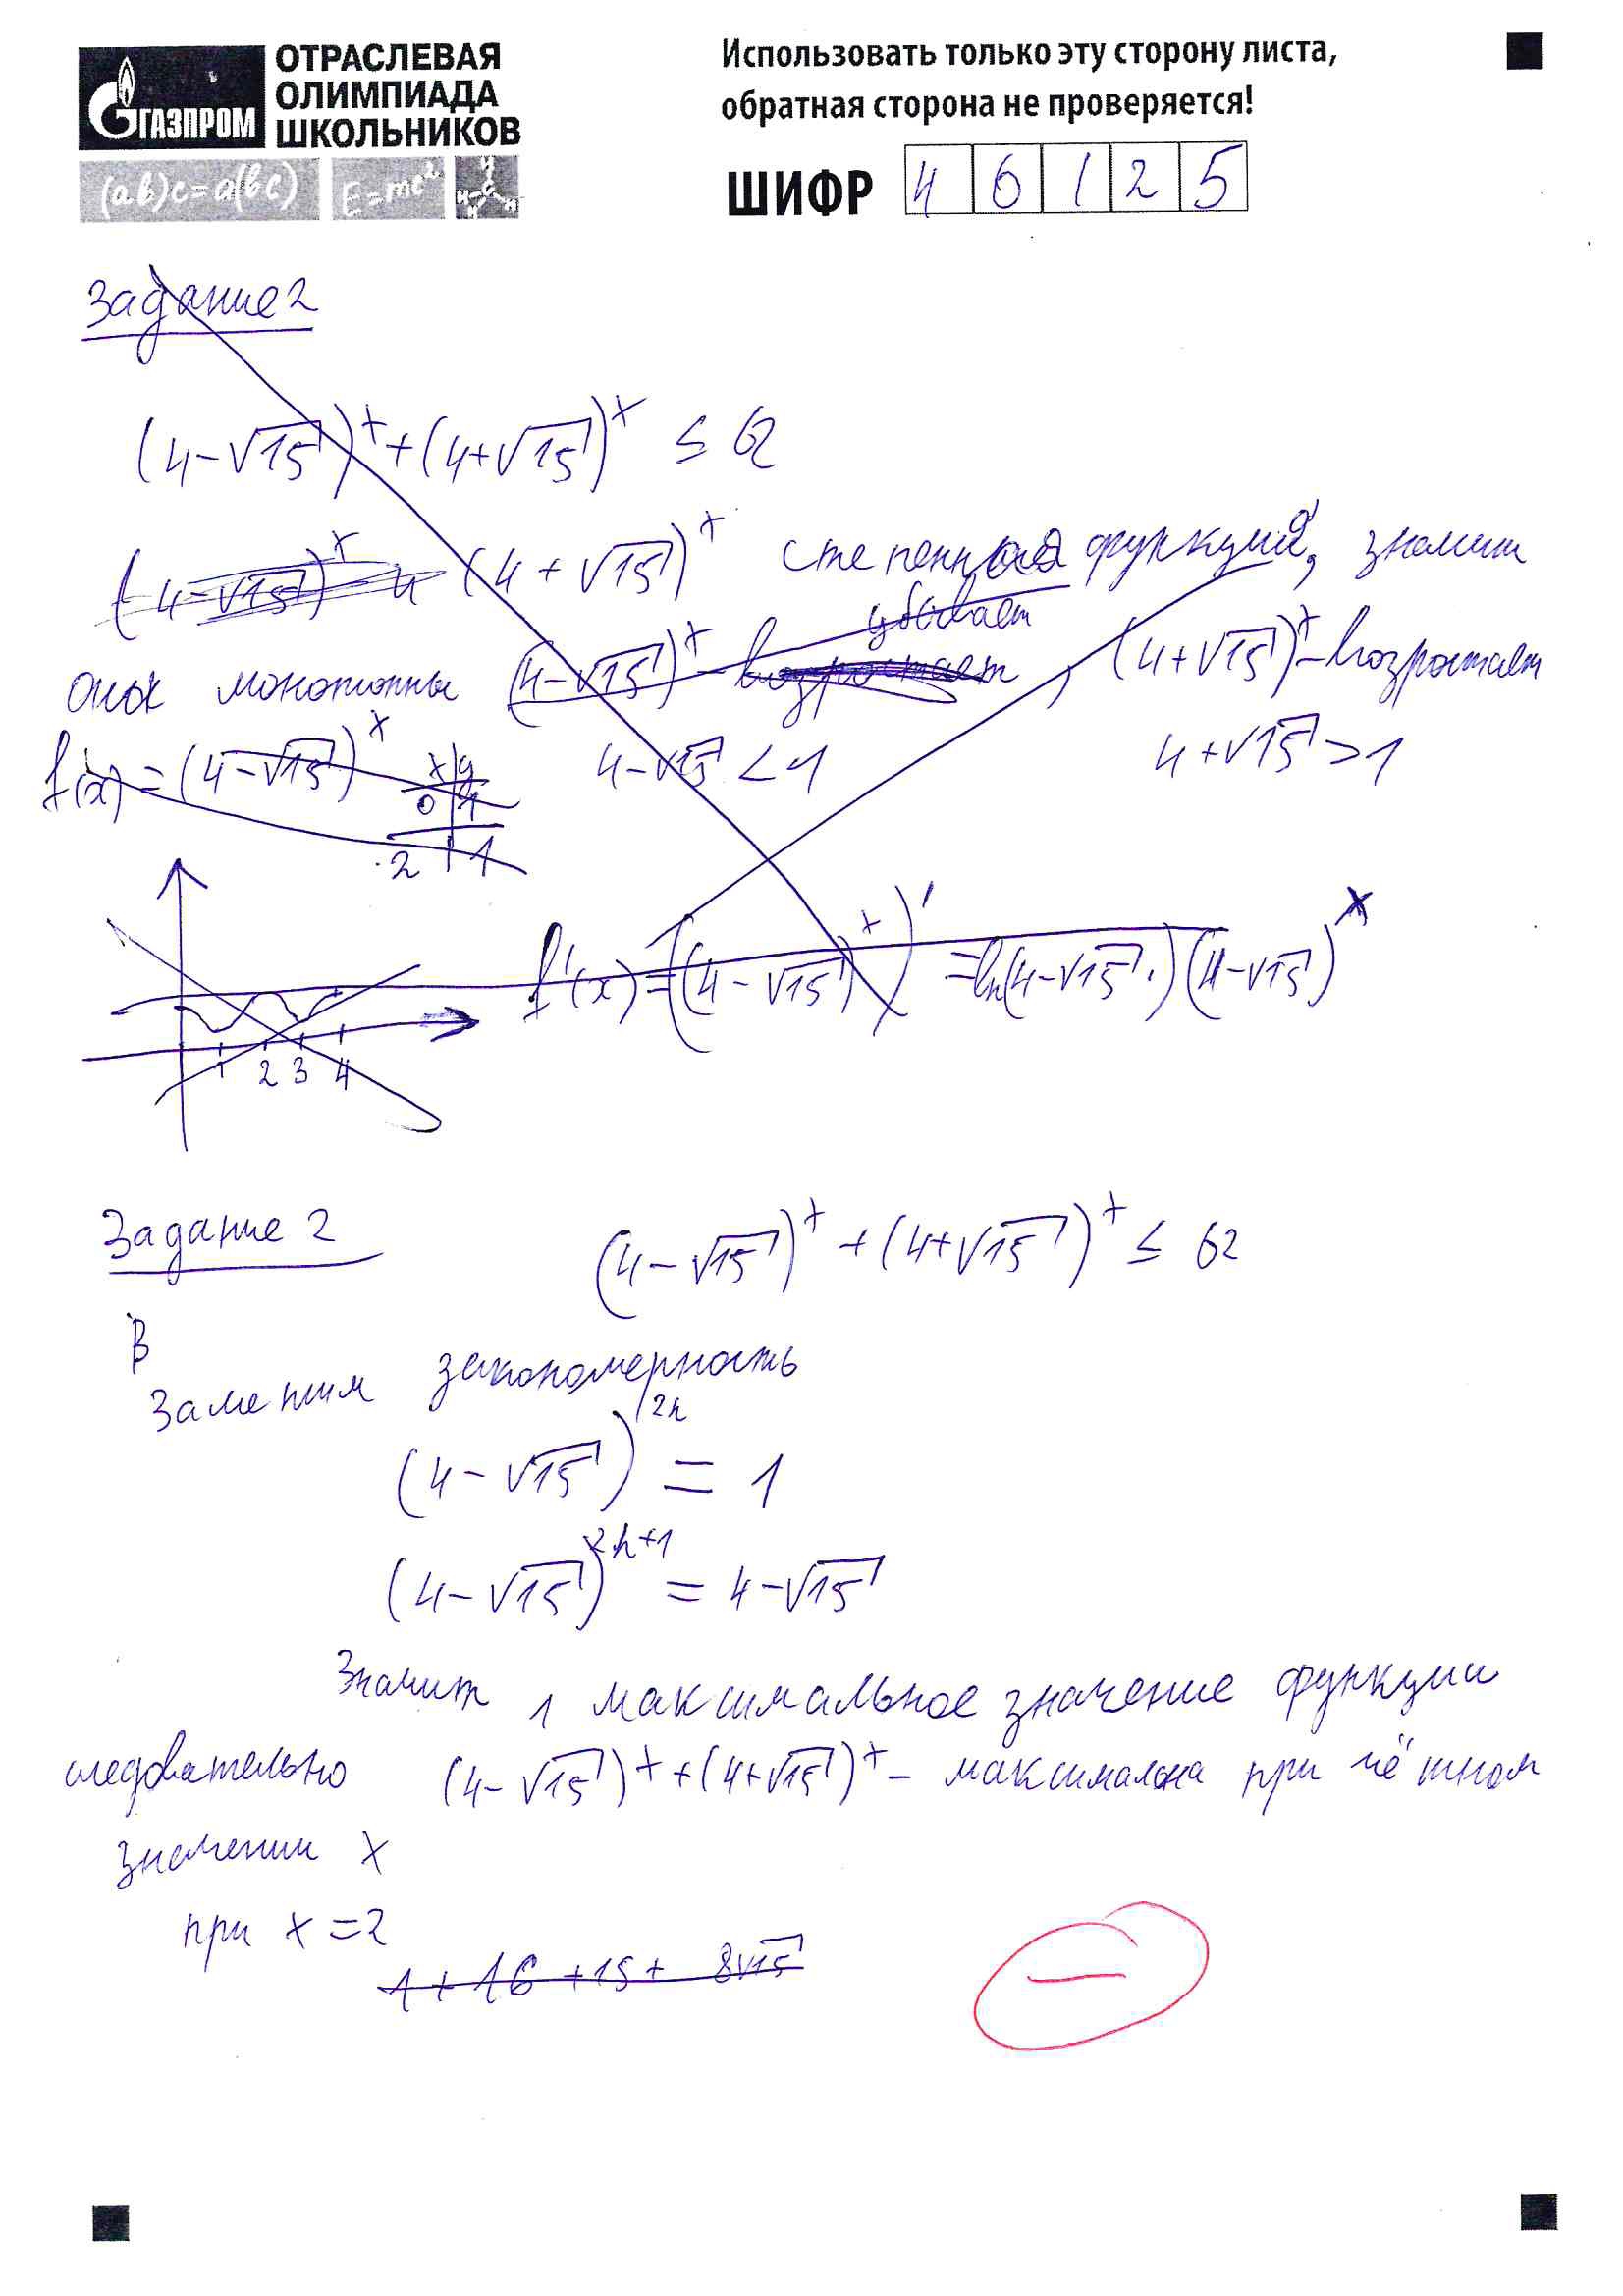 ГАЗПРОМ
ОТРАСЛЕВАЯ
ОЛИМПИАДА
ШКОЛЬНИКОВ
(ab)c=a(bc) E=mc²
Использовать только эту сторону листа,
обратная сторона не проверяется!
ШИФР 4 6 1 2 5
Задание 2
(4-√15)^x+(4+√15)^x ≤ 62
(4-√15)^x и (4+√15)^x степенная функция, значит
убывает
они монотонны (4-√15)^x - возрастает, (4+√15)^x - возростает
f(x) = (4-√15)^x 4-√15 < 1 4+√15 > 1
x y
0 1
2 1
f'(x) = ((4-√15)^x)' = ln(4-√15)(4-√15)^x
1 2 3 4
Задание 2 (4-√15)^x + (4+√15)^x ≤ 62
В
Заметим закономерность
(4-√15)^2n = 1
(4-√15)^2n+1 = 4-√15
Значит 1 максимальное значение функции
следовательно (4-√15)^x+(4+√15)^x - максимална при чётном
значении x
при x=2
1+16+15+ 8√15